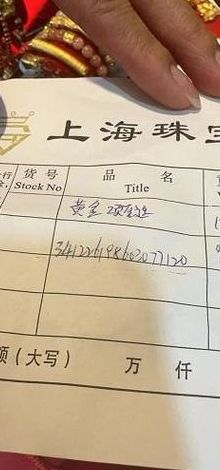 上海珠宝
货号 品名
Stock No Title
黄金 项链
341226198602077120
额（大写） 万 仟